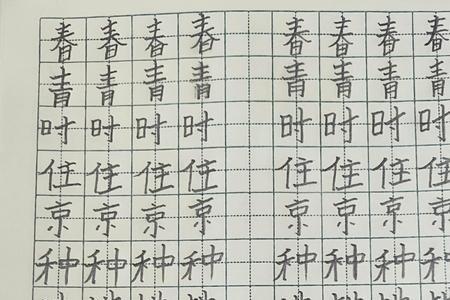 春春春春春春春春
青青青青青青青青
时时时时时时时时
住住住住住住住住
京京京京京京京京
种种种种种种种种